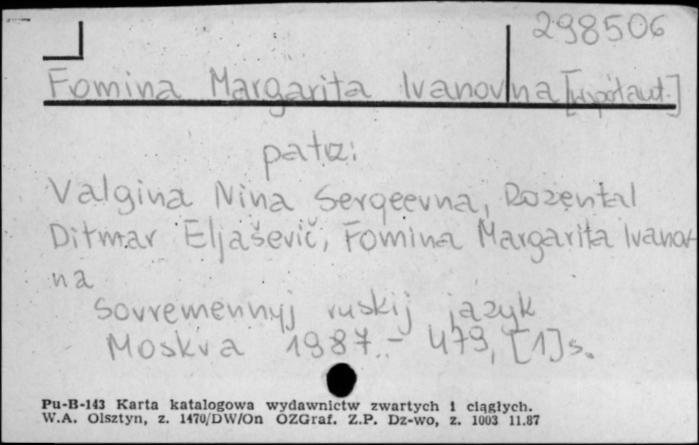 298506
Fomina Margarita Ivanovna [współaut.]
patrz:
Valgina Nina Sergeevna, Rozental
Ditmar Eljaševič, Fomina Margarita Ivanov-
na
Sovremennyj ruskij jazyk
Moskva 1987.- 479, [1] s.
Pu-B-143 Karta katalogowa wydawnictw zwartych i ciągłych.
W.A. Olsztyn, z. 1470/DW/On OZGraf. Z.P. Dz-wo, z. 1003 11.87